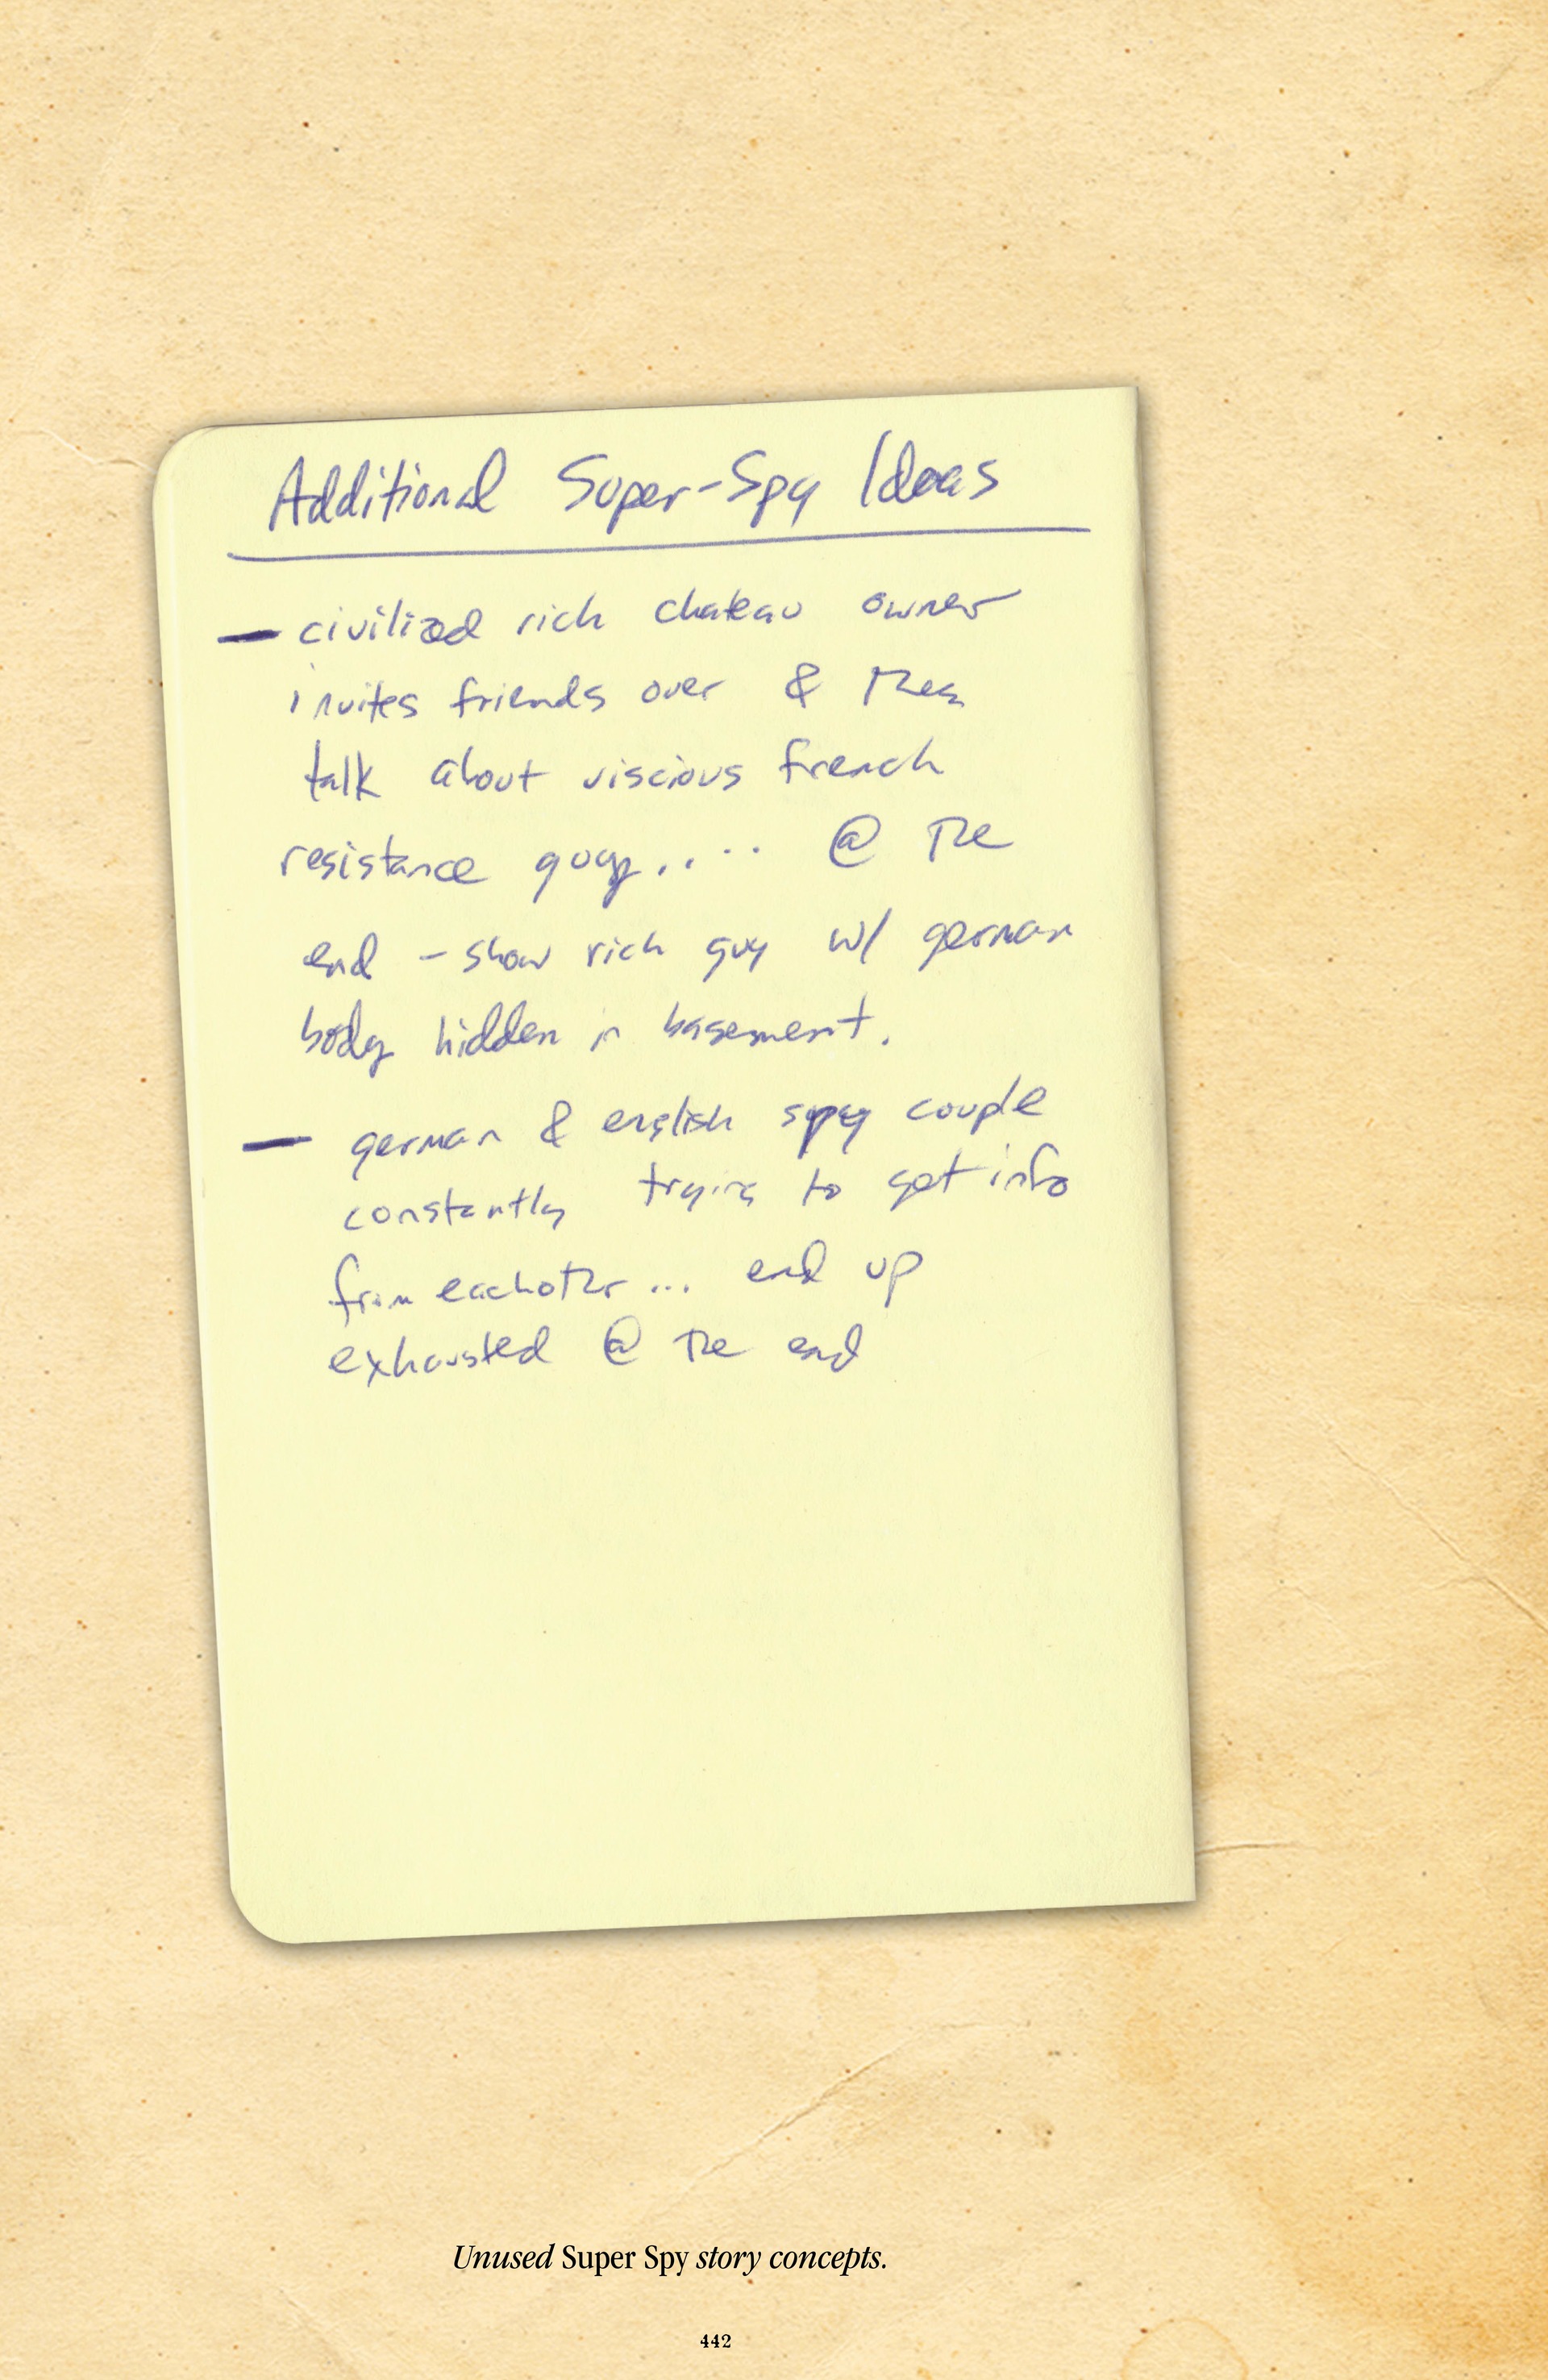 Additional Super-Spy Ideas
— civilized rich chateau owner
invites friends over & they
talk about viscious french
resistance guy.... @ the
end – show rich guy w/ german
body hidden in basement.
— german & english spy couple
constantly trying to get info
from eachother... end up
exhausted @ the end
Unused Super Spy story concepts.
442